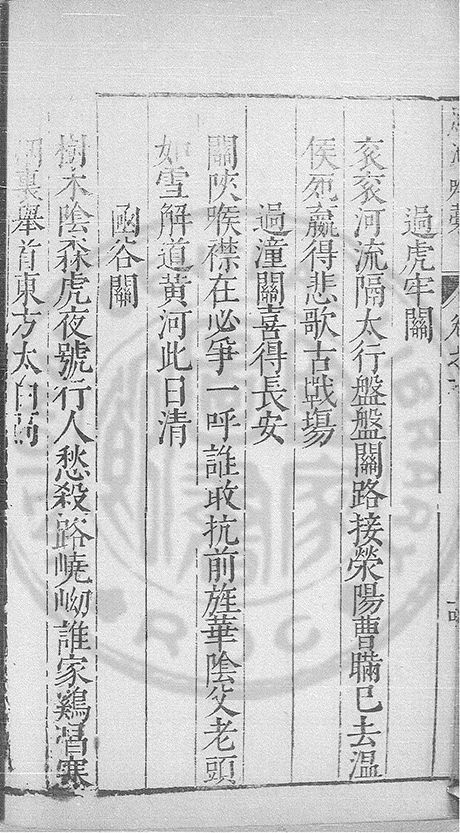 過虎牢關
衮衮河流隔太行盤盤關路接滎陽曹瞞已去溫
侯死贏得悲歌古戰塲
過潼關喜得長安
關陝喉襟在必爭一呼誰敢抗前旌華陰父老頭
如雪解道黃河此日清
函谷關
樹木陰森虎夜號行人愁殺路嶢岰誰家鷄唱寒
裏舉首東方太白高